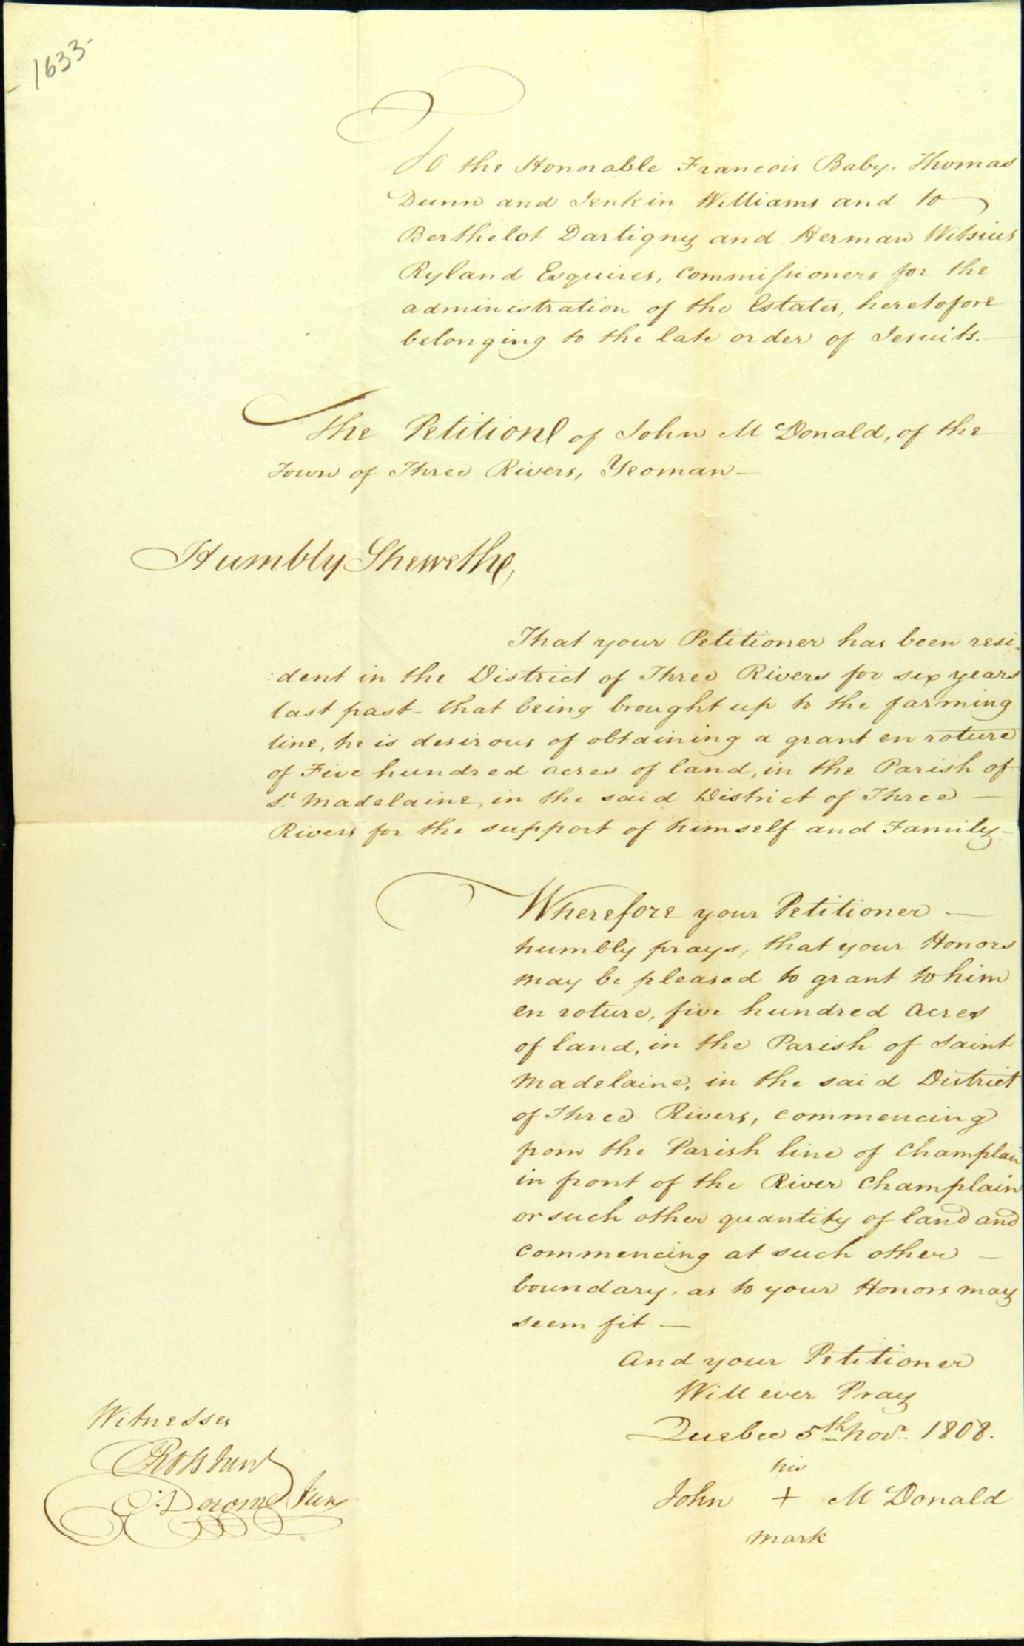 1633-
To the Honorable Francois Baby, Thomas
Dunn and Jenkin Williams and to
Berthelot Dartigny and Herman Witsius
Ryland Esquires, Commissioners for the
administration of the Estates, heretofore
belonging to the late order of Jesuits.—
The Petition of John McDonald, of the
Town of Three Rivers, Yeoman—
Humbly Sheweth,
That your Petitioner has been resi-
:dent in the District of Three Rivers for six years
last past - that being brought up to the farming
line, he is desirous of obtaining a grant en roture
of Five hundred acres of land, in the Parish of
St Madelaine, in the said District of Three —
Rivers for the support of himself and Family—
Wherefore your Petitioner —
humbly prays, that your Honors
may be pleased to grant to him
en roture, five hundred acres
of land, in the Parish of Saint
Madelaine, in the said District
of Three Rivers, commencing
from the Parish line of Champlain
in front of the River Champlain
or such other quantity of land and
commencing at such other —
boundary, as to your Honors may
seem fit —
And your Petitioner
Will ever Pray
Quebec 5th Novr. 1808.
his
John + McDonald
mark
Witnesses
Derome Jun